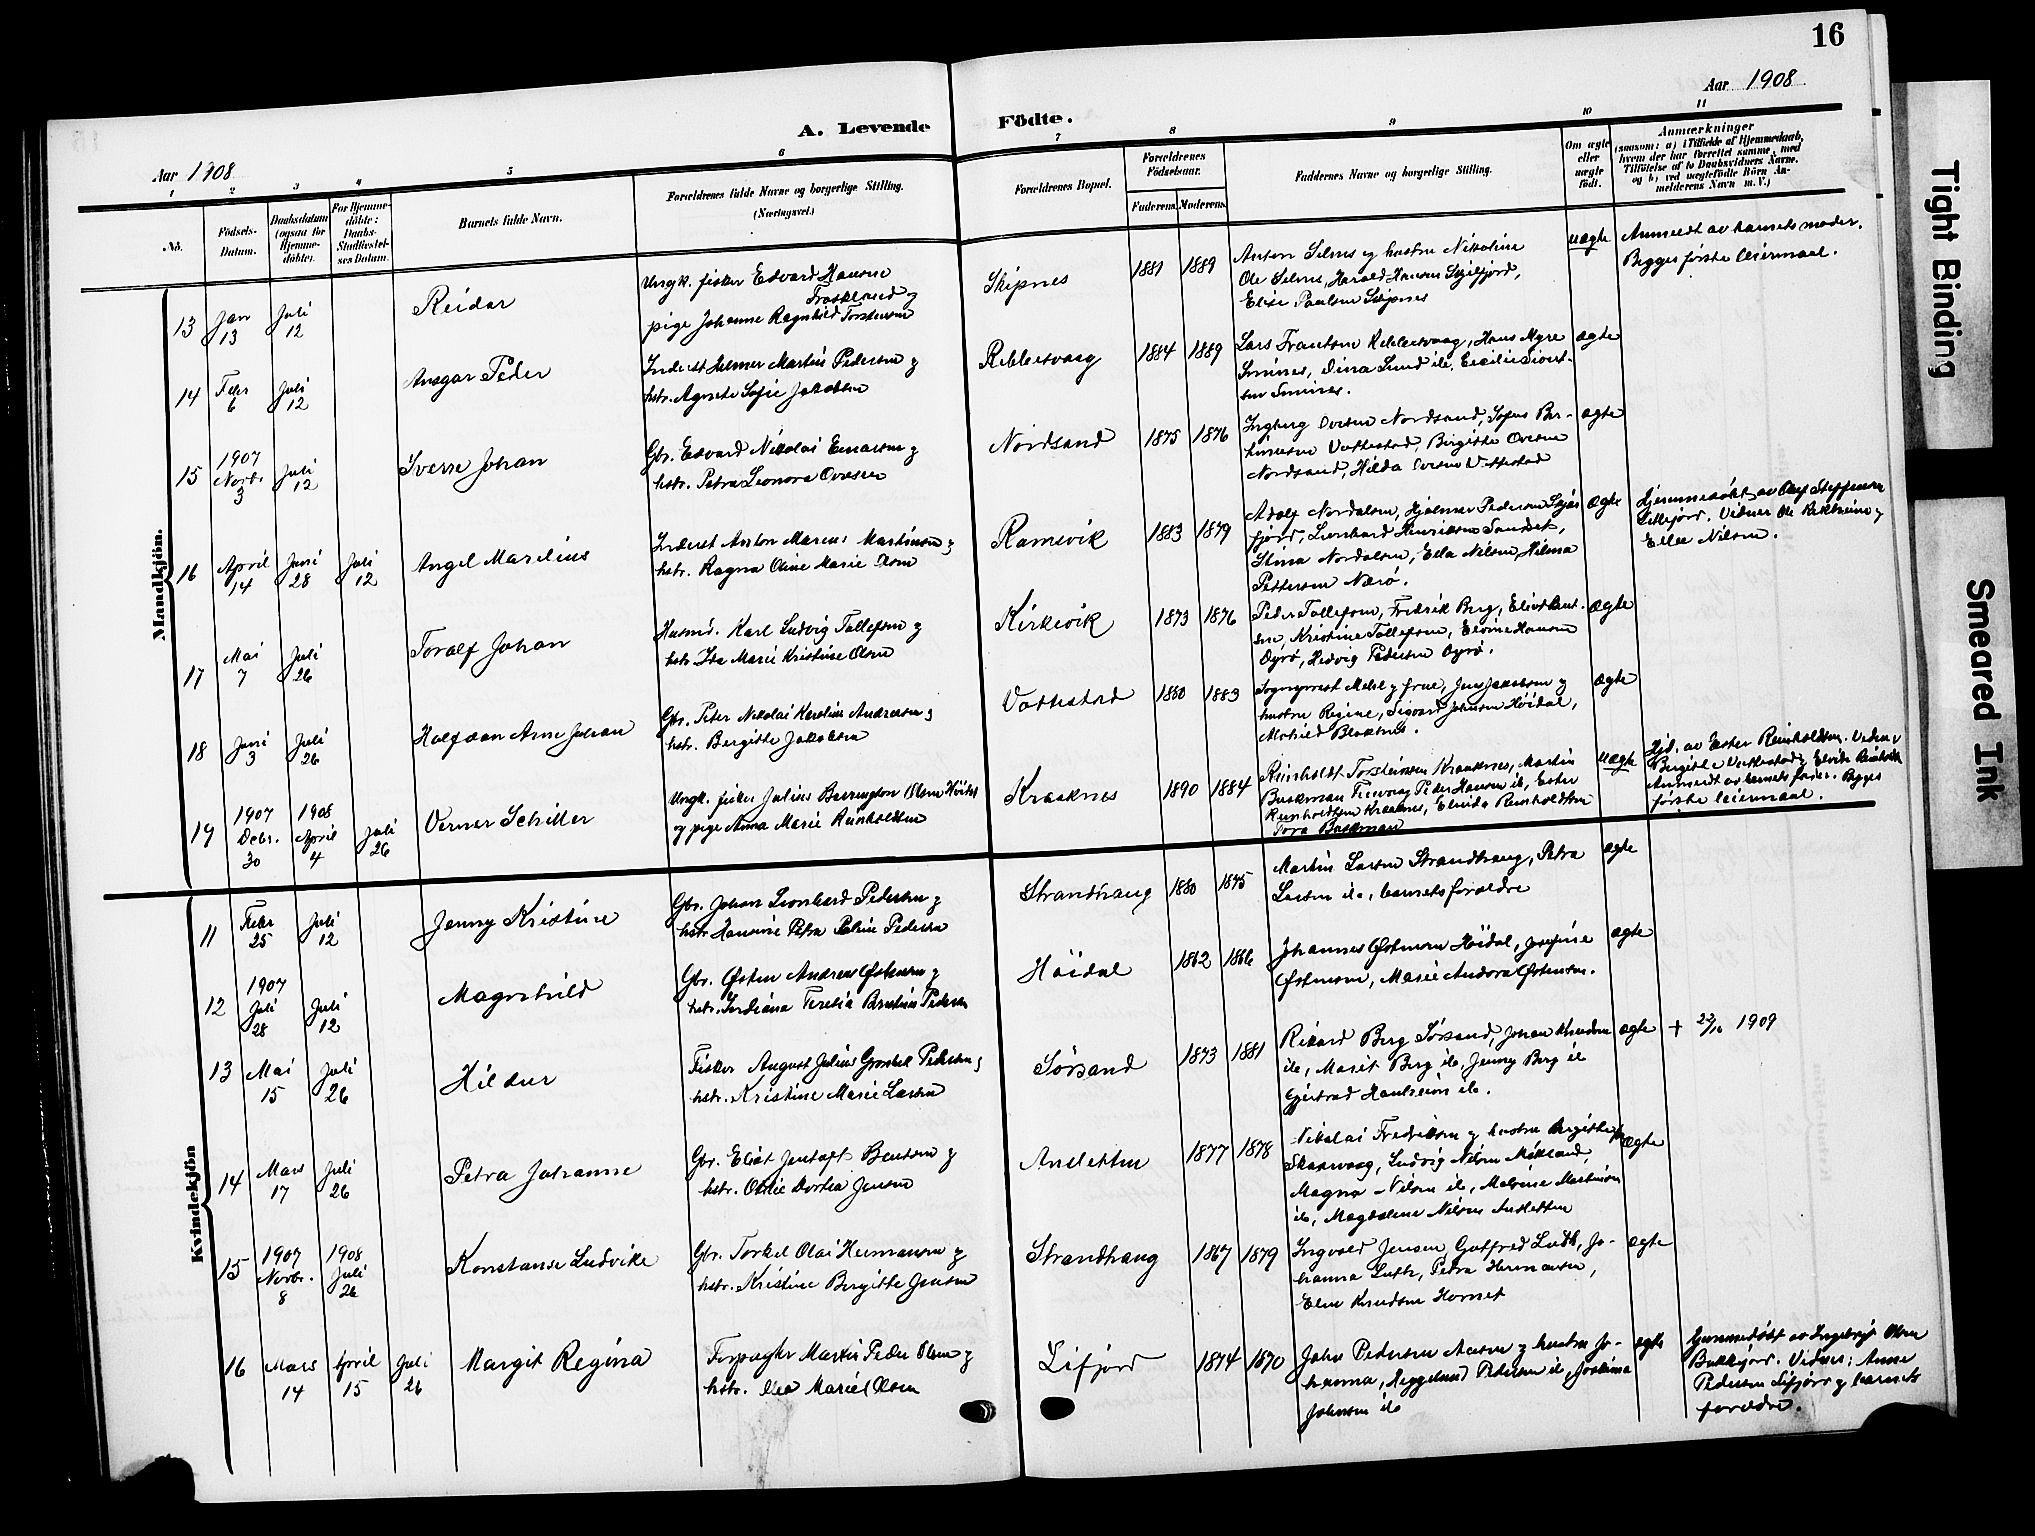 16
Aar 1908
A. Levende Födte.
Aar 1908
1 2 3 4 5 6 7 8 9 10 11
No.
Födsels-Datum.
Daabsdatum (ogsaa for Hjemme-döbte).
For Hjemme-döbte: Daabs-Stadfæstel-ses Datum.
Barnets fulde Navn.
Forældrenes fulde Navne og borgerlige Stilling.
(Næringsvei.)
Forældrenes Bopæl.
Forældrenes Födselsaar.
Faderens. Moderens.
Faddernes Navne og borgerlige Stilling.
Om ægte eller uægte födt.
Anmærkninger
(saasom: a) i Tilfælde af Hjemmedaab,
hvem der har forrettet samme, med
Tilföielse af to Daabsvidners Navne,
og b) ved uægtefödte Börn An-
melderens Navn m. V.)
Mandkjön.
13 Jan 13 Juli 12 Reidar
Ungk. fisker Edvard Hansen
pige Johanne Ragnhild Torstensen
Skipnes 1881 1889
Anton Selnes og hustru Nikoline
Ole Selnes, Harald Hansen
Elise Paulsen Skipnes
uægte
Anmeldt av barnets moder.
Begges første leiermaal.
14 Febr 6 Juli 12 Ansgar Peder
Inderst Helmer Martin Pedersen og
hstr. Agnete Sofie Jakobsen
1884 1889
Lars Frantsen Hans Myre
Smines, Dina Lund ib,
Smines.
ægte
15 1907 Novbr. 3 Juli 12 Sverre Johan
Gbr. Edvard Nikolai Enarsen og
hstr. Petra Leonora Ovesen
Nordsand 1875 1876
Ingborg Ovesen Nordsand, Sofus Ber-
Vottestad, Birgitte Ovesen
Nordsand, Hilda Ovesen Vottestad
ægte
16 April 14 Juni 28 Juli 12 Angel Marelius
Inderst Anton Marius Martinsen og
hstr. Ragna Oline Marie Olsen
Ramsvik 1883 1879
Adolf Nordalsen, Hjalmar Pedersen
fjord, Leonhard Henriksen Sandset,
Stina Nordalsen, Ella Nilsen, Hilma
Pettersen Nærø.
ægte
Hjemmedøbt av Olaf Steffensen
Lillefjord. Vidner Ole og
Ellen Nilsen.
17 Mai 7 Juli 26 Toralf Johan
Husmd. Karl Ludvig Tollefsen og
hstr. Ida Marie Kristine Olsen
Kirkevik 1873 1876
Peder Tollefsen, Fredrik Berg, Eliot Bent-
sen, Kristine Tollefsen, Elvine Hansen
Dyrø, Hedvig Pedersen Dyrø.
ægte
18 Juni 3 Juli 26 Halfdan Arne Johan
Gbr. Peter Nikolai Karelius Andersen og
hstr. Bergitte Jakobsen
Vottestad 1880 1883
Sogneprest Melse og frue, Jens Jakobsen og
hustru Regine, Sigvard Johnsen Höidal,
Blaknes.
ægte
19 1907 Debr. 30 1908 April 4 Juli 26 Verner Schiller
Ungk. fisker Julius Barrington Olsen Höidal
og pige Anna Marie Reinholdtsen
Kraaknes 1890 1884
Reinholdt Torstensen Kraaknes, Martin
Buckman Peder Hansen ib, Ester
Reinholdtsen Kraaknes, Elvida Reinholdtsen
Tora Buckman
uægte
Hjd. av Ester Reinholdtsen. Vidner
Birgitte Vottestad og Elvida
Anmeldt av barnets fader. Begges
første leiermaal.
Kvindekjön
11 Febr 25 Juli 12 Jenny Kristine
Gbr. Johan Leonhard Pedersen og
hstr. Hansine Petra Oline Pedersen
Strandhaug 1880 1875
Martin Larsen Strandhaug, Petra
Larsen ib., barnets forældre
ægte
12 1907 Juli 28 Juli 12 Magnhild
Gbr. Østen Andreas Østensen og
hstr. Indiana Teresia Pedersen
Höidal 1862 1866
Johannes Østensen Höidal, Josefine
Østensen, Marie Andora Østensen.
ægte
13 Mai 15 Juli 26 Hildur
Fisker August Julius Pedersen og
hstr. Kristine Marie Larsen
Sörsand 1873 1881
Rikard Berg Sørsand, Johan Knudsen
ib, Marit Berg ib, Jenny Berg ib
Gjertrud ib.
ægte
+ 22/10 1909
14 Mars 17 Juli 26 Petra Johanne
Gbr. Eliot Jentoft Bentsen og
hstr. Oline Dortea Jensen
Ansletten 1877 1878
Nikolai Fredriksen og hustru Bergitte
Ludvig Nilsen
Magna Nilsen ib, Melvine Martinsen
ib, Magdalene Nilsen Ansletten
ægte
15 1907 Novbr. 8 1908 Juli 26 Konstanse Ludvike
Gbr. Torkel Olai Hermansen og
hstr. Kristine Birgitte Jensen
Strandhaug 1867 1879
Ingvald Jensen, Gotfred Luth, Jo-
hanna Luth, Petra Hermansen,
Elen Knudsen Hornset
ægte
16 Mars 14 April 15 Juli 26 Margit Regina
Forpagter Martin Peder Olsen og
hstr. Olea Marie Olsen
Lifjord 1874 1870
John Pedersen og hustru Jo-
hanna, Pedersen ib, Joakima
Johnsen ib
ægte
Hjemmedøbt av Ingebrigt Olsen
Bakkejord. Vidner: Anne
Pedersen Lifjord og barnets
forældre.
Tight Binding
Smeared Ink